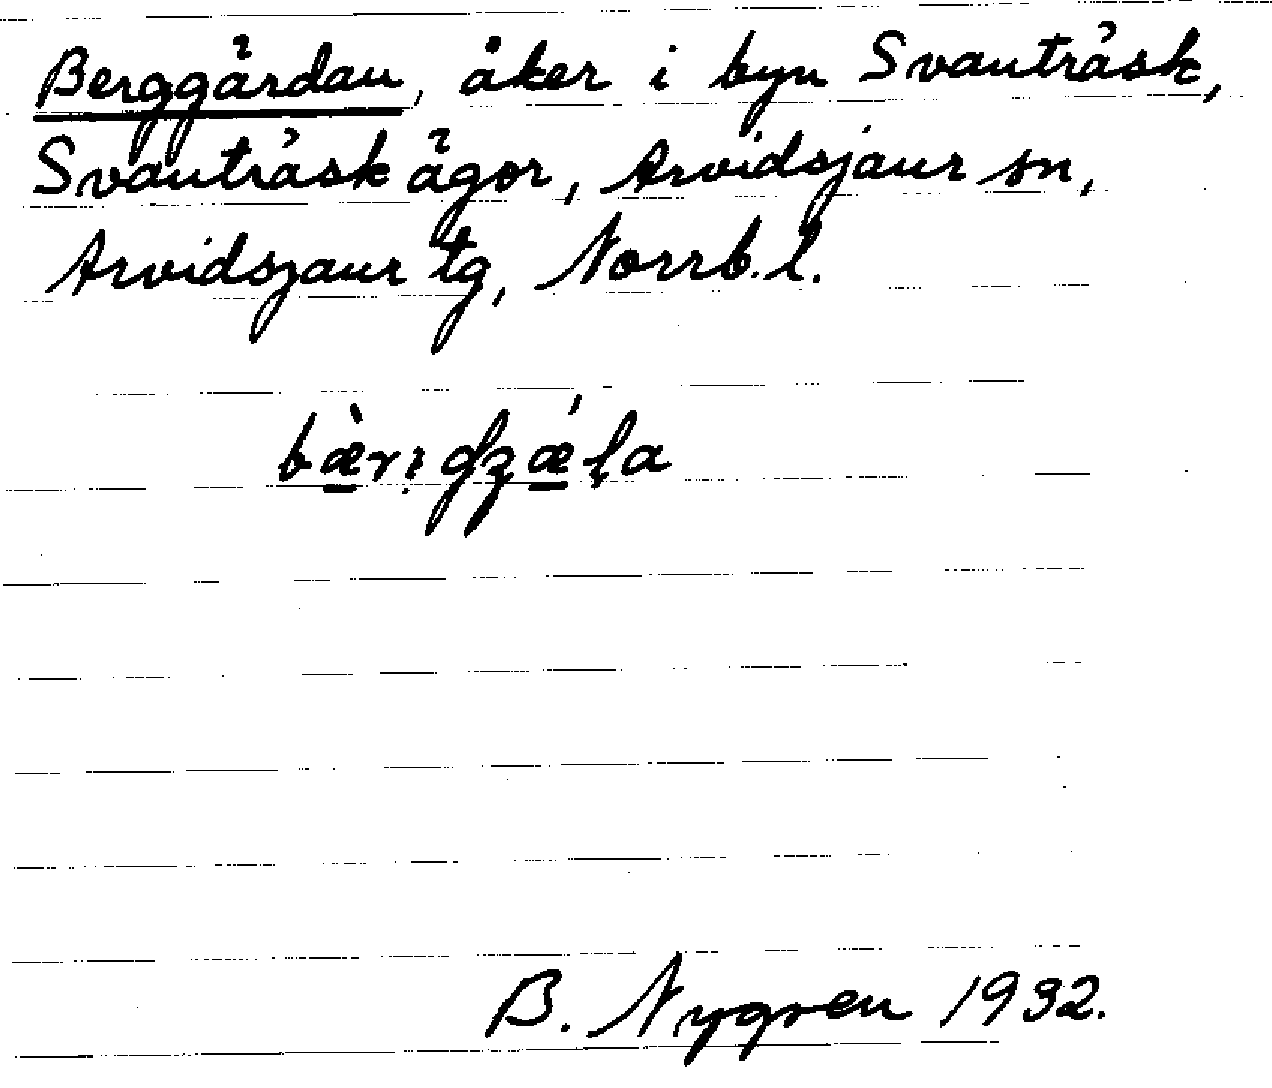 Berggårdan, åker i byn Svanträsk,
Svanträsk ägor, Arvidsjaur sn,
Arvidsjaur tg, Norrb. l.
B. Nygren 1932.